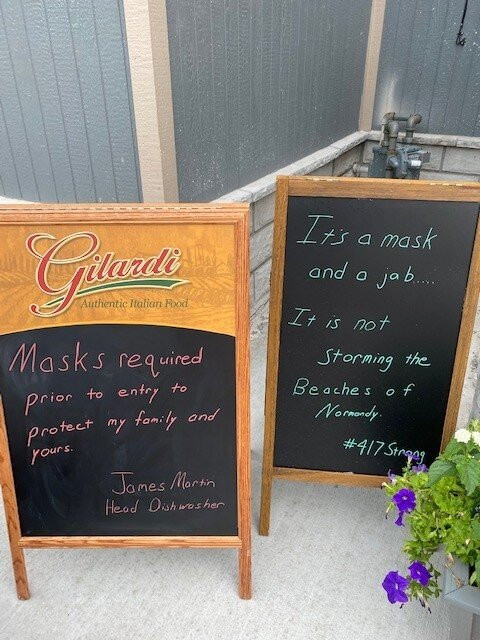 Gilardi
Authentic Italian Food
Masks required
prior to entry to
protect my family and
yours.
James Martin
Head Dishwasher
It's a mask
and a jab....
It is not
storming the
Beaches of
Normandy.
#417Strong